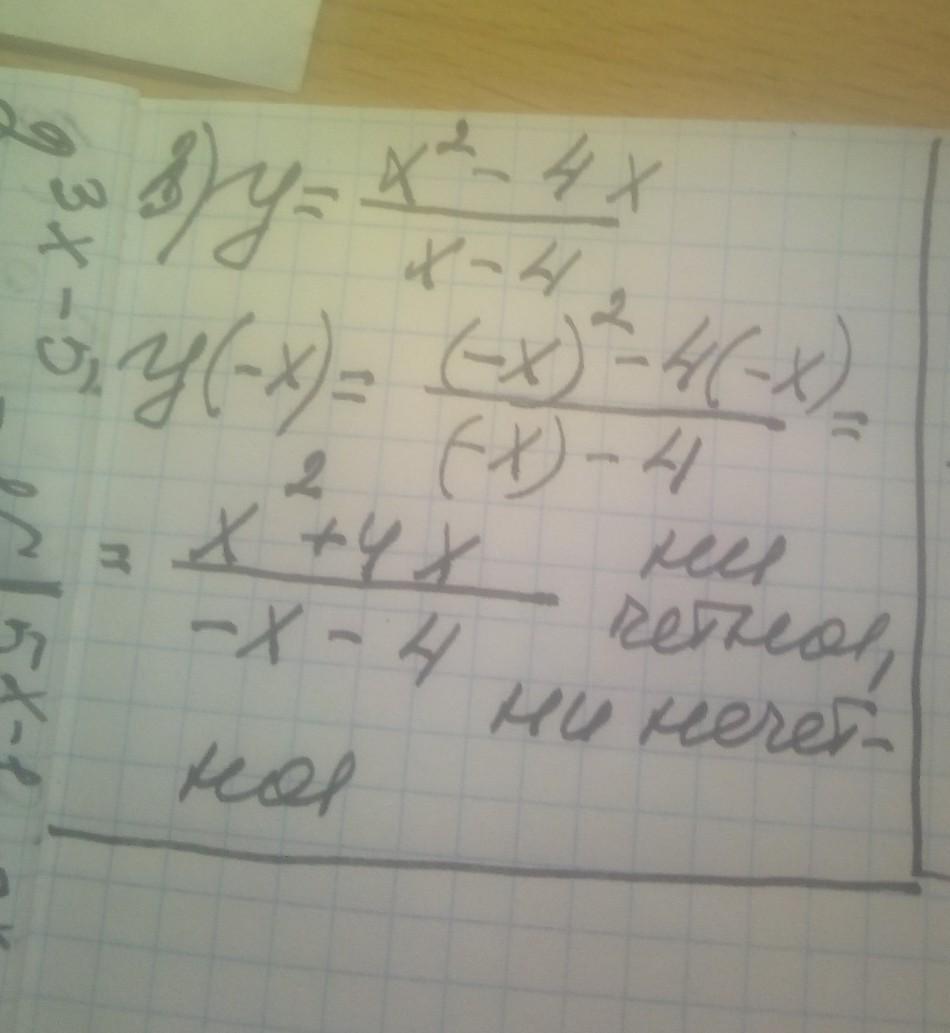 в) y = (x² - 4x)/(x - 4)
y(-x) = ((-x)² - 4(-x))/((-x) - 4) =
= (x² + 4x)/(-x - 4) ни
четная,
ни нечет-
ная
3x - 5